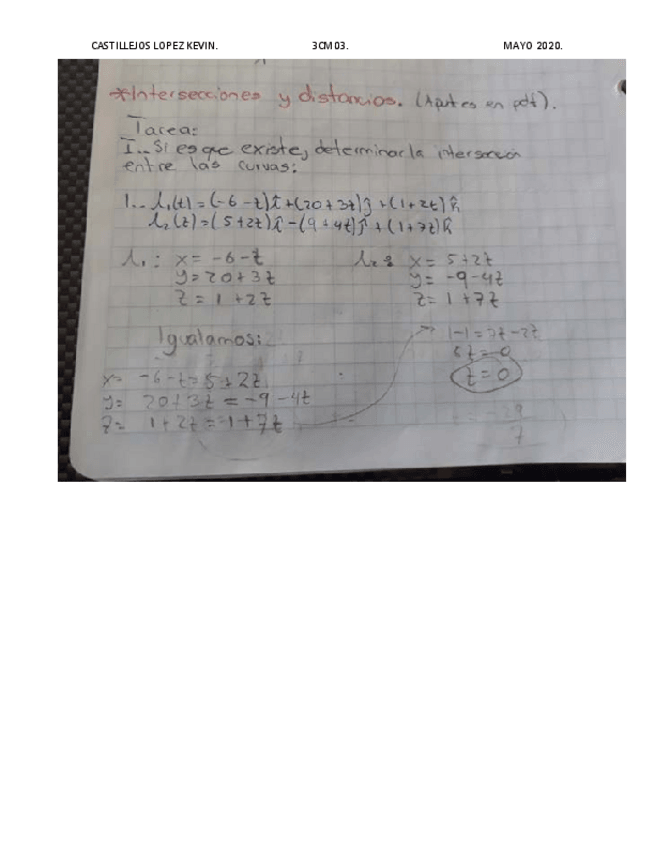 CASTILLEJOS LOPEZ KEVIN. 3CM03. MAYO 2020.
*Intersecciones y distancias. (Aputes en pdf).
Tarea:
I.- Si es que existe, determinar la intersección
entre las curvas:
1.- l₁(t)=(-6-t)î+(20+3t)ĵ+(1+2t)k̂
l₂(t)=(5+2t)î-(9+4t)ĵ+(1+7t)k̂
l₁: x= -6-t l₂: x= 5+2t
y=20+3t y= -9-4t
z= 1+2t z= 1+7t
Igualamos: 1-1=7t-2t
t=0
x= -6-t=5+2t
y= 20+3t=-9-4t
z= 1+2t= 1+7t
-29
7